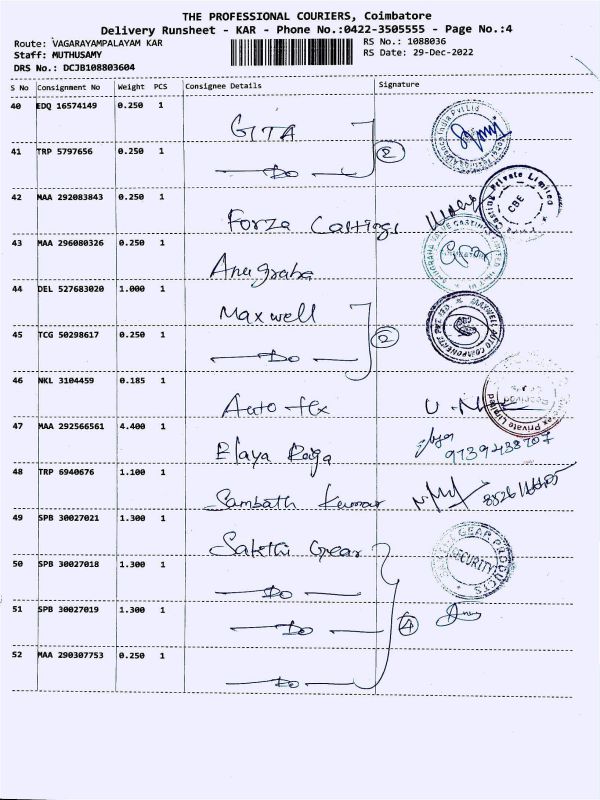 THE PROFESSIONAL COURIERS, Coimbatore
Delivery Runsheet - KAR - Phone No.:0422-3505555 - Page No.:4
Route: VAGARAYAMPALAYAM KAR RS No.: 1088036
Staff: MUTHUSAMY RS Date: 29-Dec-2022
DRS No.: DCJB108803604
S No Consignment No Weight PCS Consignee Details Signature
40 EDQ 16574149 0.250 1 GITA
41 TRP 5797656 0.250 1 Do 2
42 MAA 292083843 0.250 1 Forza Castings
Casting Private Limited
CBE
43 MAA 296080326 0.250 1 Anugraha
44 DEL 527683020 1.000 1 Maxwell
MAXWELL AUTO COMPONENTS PVT LTD
45 TCG 50298617 0.250 1 Do 2
46 NKL 3104459 0.185 1 Auto flex
Private Limited
47 MAA 292566561 4.400 1 Elaya Raja
48 TRP 6940676 1.100 1 Sambath Kumar
49 SPB 30027021 1.300 1 Sakthi Gear
GEAR PRODUCTS
SECURITY
50 SPB 30027018 1.300 1 Do
51 SPB 30027019 1.300 1 Do 4
52 MAA 290307753 0.250 1 Do